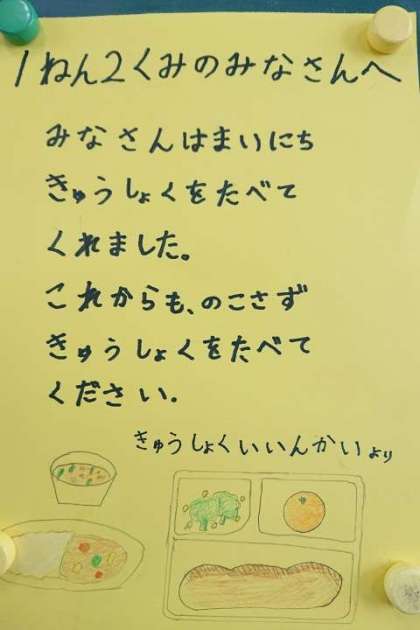 1ねん2くみのみなさんへ
みなさんはまいにち
きゅうしょくをたべて
くれました。
これからも、のこさず
きゅうしょくをたべて
ください.
きゅうしょくいいんかいより